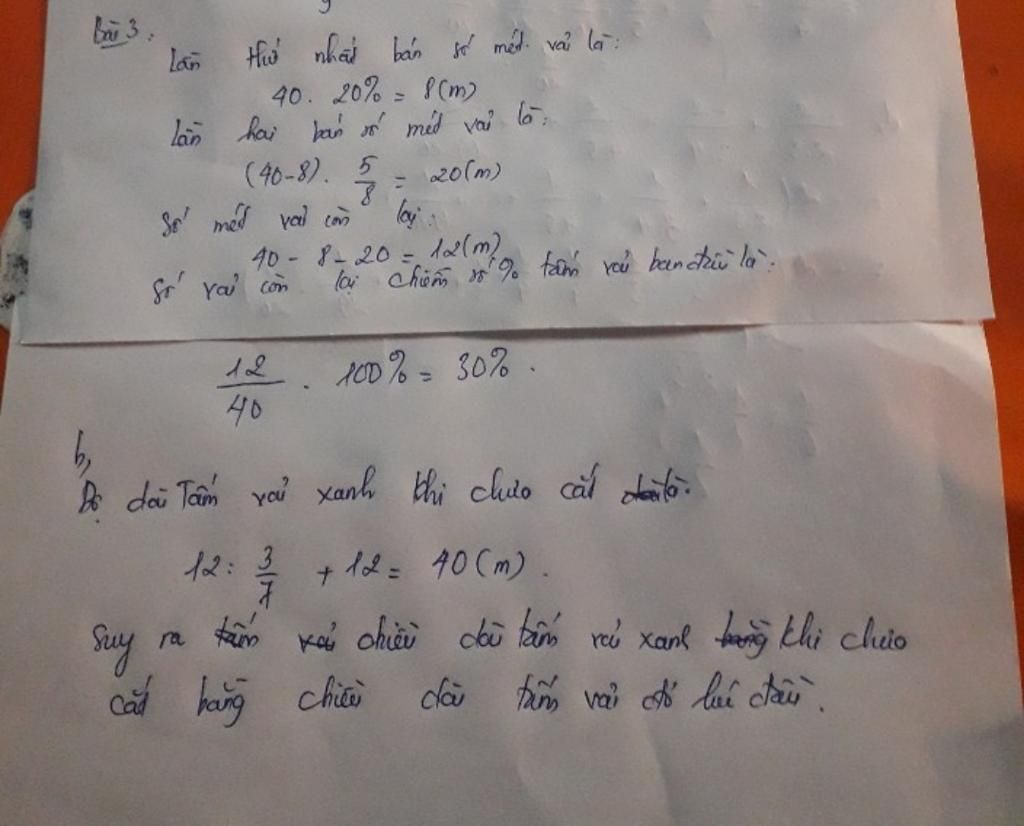 Bài 3:
Lần thứ nhất bán số mét vải là:
40. 20% = 8(m)
Lần hai bán số mét vải là:
(40-8). 5/8 = 20(m)
Số mét vải còn lại:
40 - 8 - 20 = 12(m)
Số vải còn lại chiếm số % tấm vải ban đầu là:
12/40 . 100% = 30%.
b,
Độ dài Tấm vải xanh khi chưa cắt là:
12: 3/7 + 12 = 40(m).
Suy ra tấm vải chiều dài tấm vải xanh bằng khi chưa
cắt bằng chiều dài tấm vải đỏ lúc đầu.